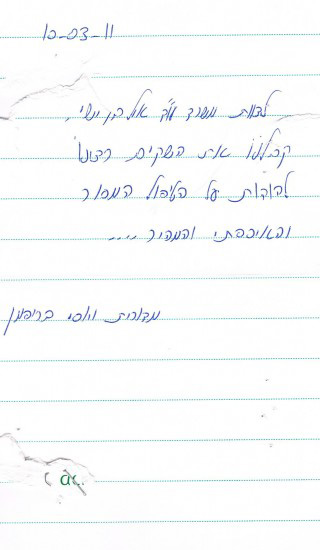 10-03-11
לצוות משרד עו"ד אלון בן ישי,
קבלנו את השקים רצינו
להודות על הטיפול המסור
והאיכפתי והמהיר ....
מדורית ויוסי בריפמן